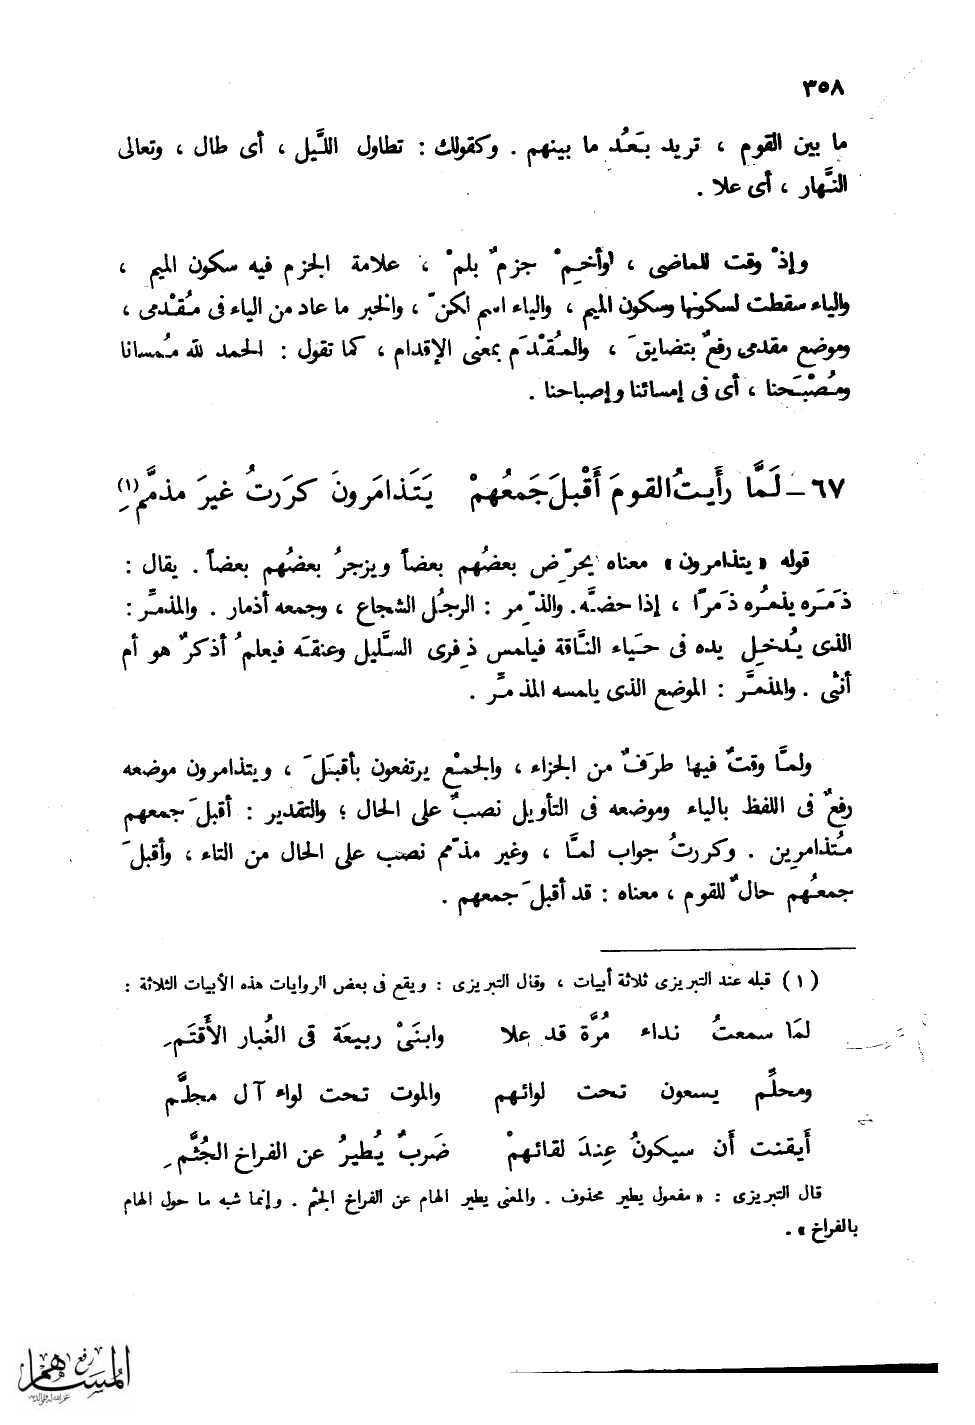 ٣٥٨
ما بين القوم ، تريد بَعُد ما بينهم . وكقولك : تطاول اللَّيل ، أى طال ، وتعالى
النَّهار ، أى علا .
وإذْ وقت للماضى ، وأخِمْ جزمٌ بلمْ ، علامة الجزم فيه سكون الميم ،
والياء سقطت لسكونها وسكون الميم ، والياء اسم لكنّ ، والخبر ما عاد من الياء فى مُقْدمى ،
وموضع مقدمى رفعٌ بتضايقَ ، والمُقْدَم بمعنى الإقدام ، كما تقول : الحمد لله مُمسانا
ومُصْبَحنا ، أى فى إمسائنا وإصباحنا .
٦٧ – لَمَّا رأَيتُ القومَ أَقْبلَ جَمعُهمْ يَتَذامَرونَ كرَرتُ غيرَ مذمَّمِ (١)
قوله « يتذامرون » معناه يحرّض بعضُهم بعضاً ويزجرُ بعضُهم بعضاً . يقال :
ذَمَره يذمُره ذَمرًا ، إذا حضَّه . والذِّمر : الرجُل الشجاع ، وجمعه أذمار . والمذمِّر :
الذى يُدخِل يده فى حَياء النَّاقة فيلمس ذِفرى السَّليل وعنقَه فيعلمُ أذكرٌ هو أم
أنثى . والمذمَّر : الموضع الذى يلمسه المذمِّر .
ولمَّا وقتٌ فيها طرَفٌ من الجزاء ، والجمعْ يرتفعون بأقبلَ ، ويتذامرون موضعه
رفعٌ فى اللفظ بالياء وموضعه فى التأويل نصبٌ على الحال ؛ والتقدير : أقبلَ جمعهم
مُتذامرِين . وكررتُ جواب لمَّا ، وغير مذمّم نصب على الحال من التاء ، وأقبلَ
جمعُهم حالٌ للقوم ، معناه : قد أقبلَ جمعهم .
( ١ ) قبله عند التبريزى ثلاثة أبيات ، وقال التبريزى : ويقع فى بعض الروايات هذه الأبيات الثلاثة :
لمَا سمعتُ نداء مُرَّة قد علا وابنَىْ ربيعَة فى الغُبار الأَقتَمِ
ومحلِّم يسعون تحت لوائهم والموت تحت لواء آل محلَّم
أَيقنت أَن سيكونُ عِندَ لقائهمْ ضَربٌ يُطيرُ عن الفراخ الجُثَّمِ
قال التبريزى : « مفعول يطير محذوف . والمعنى يطير الهام عن الفراخ الجثم . وإنما شبه ما حول الهام
بالفراخ » .
رفع
المساهم